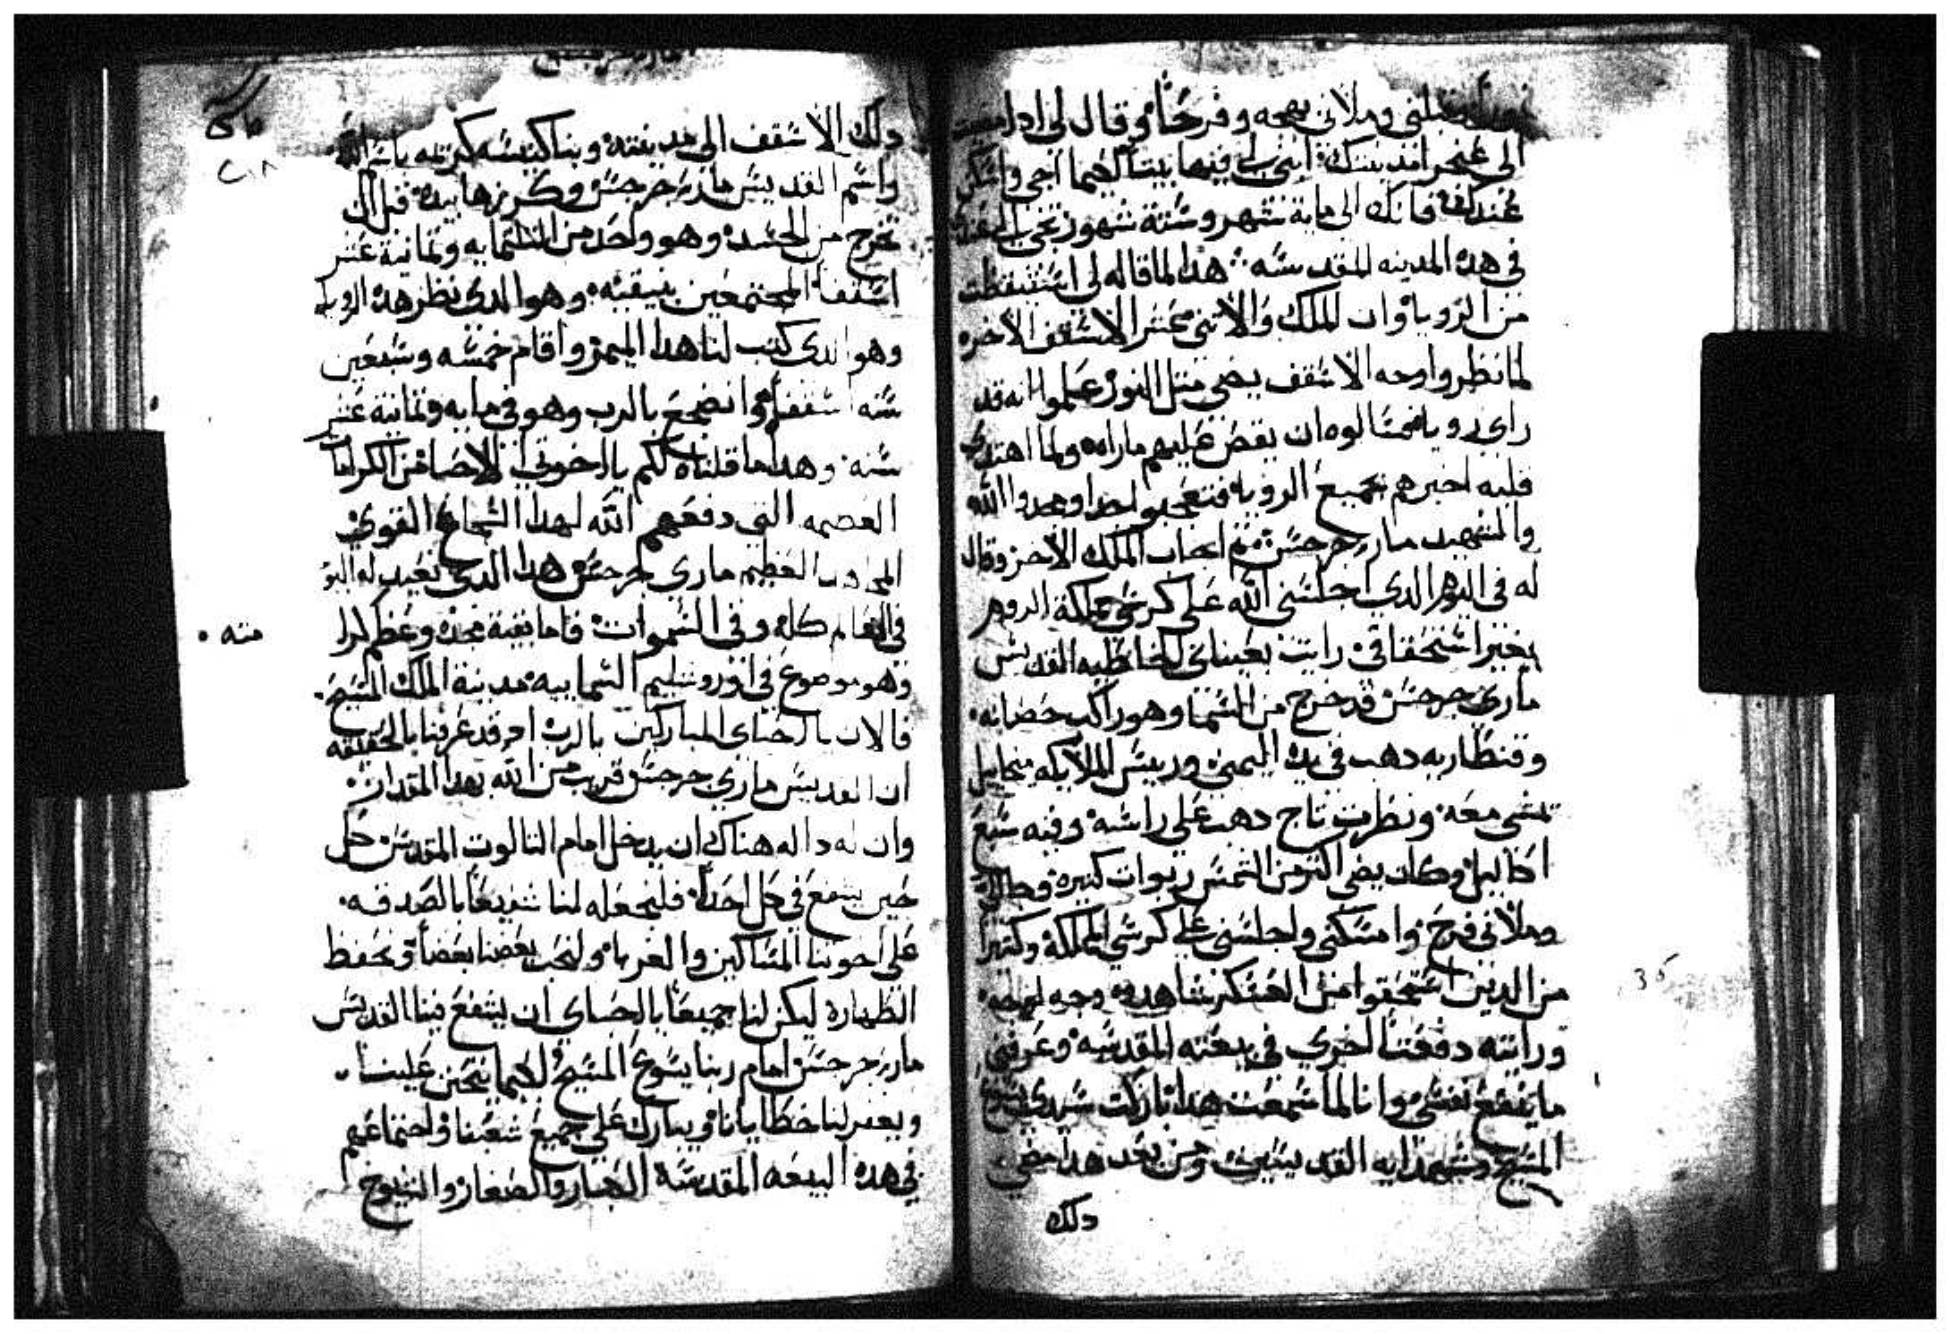 وقبلني وملاني بهجه وفرحاً وقال لي اذا مضيت
الى عند مدينتك ابني لي فيها بيتاً لكيما اجي واسكن
عندكم فانك الى ماية شهر وستة شهور تجي الى عندي
في هده المدينه المقدسه هدا لما قاله لي استيقظت
من الرويا وان الملك والاتني عشر الاسقف الاخره
لما نظروا وجه الاسقف يضي متل النور علموا انه قد
راي رويا فسالوه ان يقص عليهم ماراه ولما اهتدي
قلبه اخبرهم بجميع الرويا فتعجبوا جدا ومجدوا الله
والشهيد ماري جرجس تم اجاب الملك الاخر وقال
له في الدهر الدي اجلسني الله على كرسي مملكة الروم
بغير استحقاقي رايت بعيناي الخاطيه القديس
ماري جرجس قد خرج من السما وهو راكب حصانه
وقنطاريه دهب في يده اليمني ورييس الملايكه ميخاييل
يمشي معه ونظرت تاج دهب على راسه وفيه سبع
اكاليل وكان يضي اكتر من الشمس ربوات كتيره
وملاني فرح وامسكني واجلسني علي كرسي المملكة وكتيرا
من الدين استحقوا من العسكر شاهدوه وجه لوجه
ورايته دفعتاً اخري في بيعته المقدسه وعرفني
ما ينفع نفسي وانا لما سمعت هدا باركت سيدي يسوع
المسيح وشهدايه القديسين ومن بعد هدا مضي
دلك
دلك الاسقف الى مدينته وبنا كنيسه كرتله باسم الله
واسم القديس ماري جرجس وكرزها بيده قبل ان
يخرج من الجسد وهو واحد من التلتمايه وتمانية عشر
اسقفا المجتمعين بنيقيه وهو الدي نظر هده الرويا
وهو الدي كتب لنا هدا الميمر واقام خمسه وسبعين
سنه اسقفاً وانضجع بالرب وهو في مايه وتمانية عشر
سنه وهدا ما قلناه لكم يا اخوتي الاحبا من الكرامات
العضيمه التي دفعهم الله لهدا الشجاع القوي
المجاهد العظيم ماري جرجس هدا الدي نعيد له اليوم
في العالم كله وفي السموات فاما بقية مجده وعظم كرا
مته
وهو موضوع في اوروشليم السماييه مدينة الملك المسيح
فالان يا احباي المباركين بالرب اد قد عرفنا بالحقيقه
ان القديس ماري جرجس قريب من الله بهدا المقدار
وان له داله هناك ان يدخل امام التالوت المقدس كل
حين يشفع في كل احداً فلنجعله لنا شفيعاً بالصدقه
على اخوتنا المساكين والغربا ولنحب بعضنا بعضاً ونحفظ
الطهارة ليكن لنا جميعاً يا احباي ان يشفع فينا القديس
ماري جرجس امام ربنا يسوع المسيح لكيما يتحنن علينا
ويغفر لنا خطايانا ويبارك علي جميع شعبنا واجتماعهم
في هده البيعه المقدسة الكبار والصغار والشيوخ